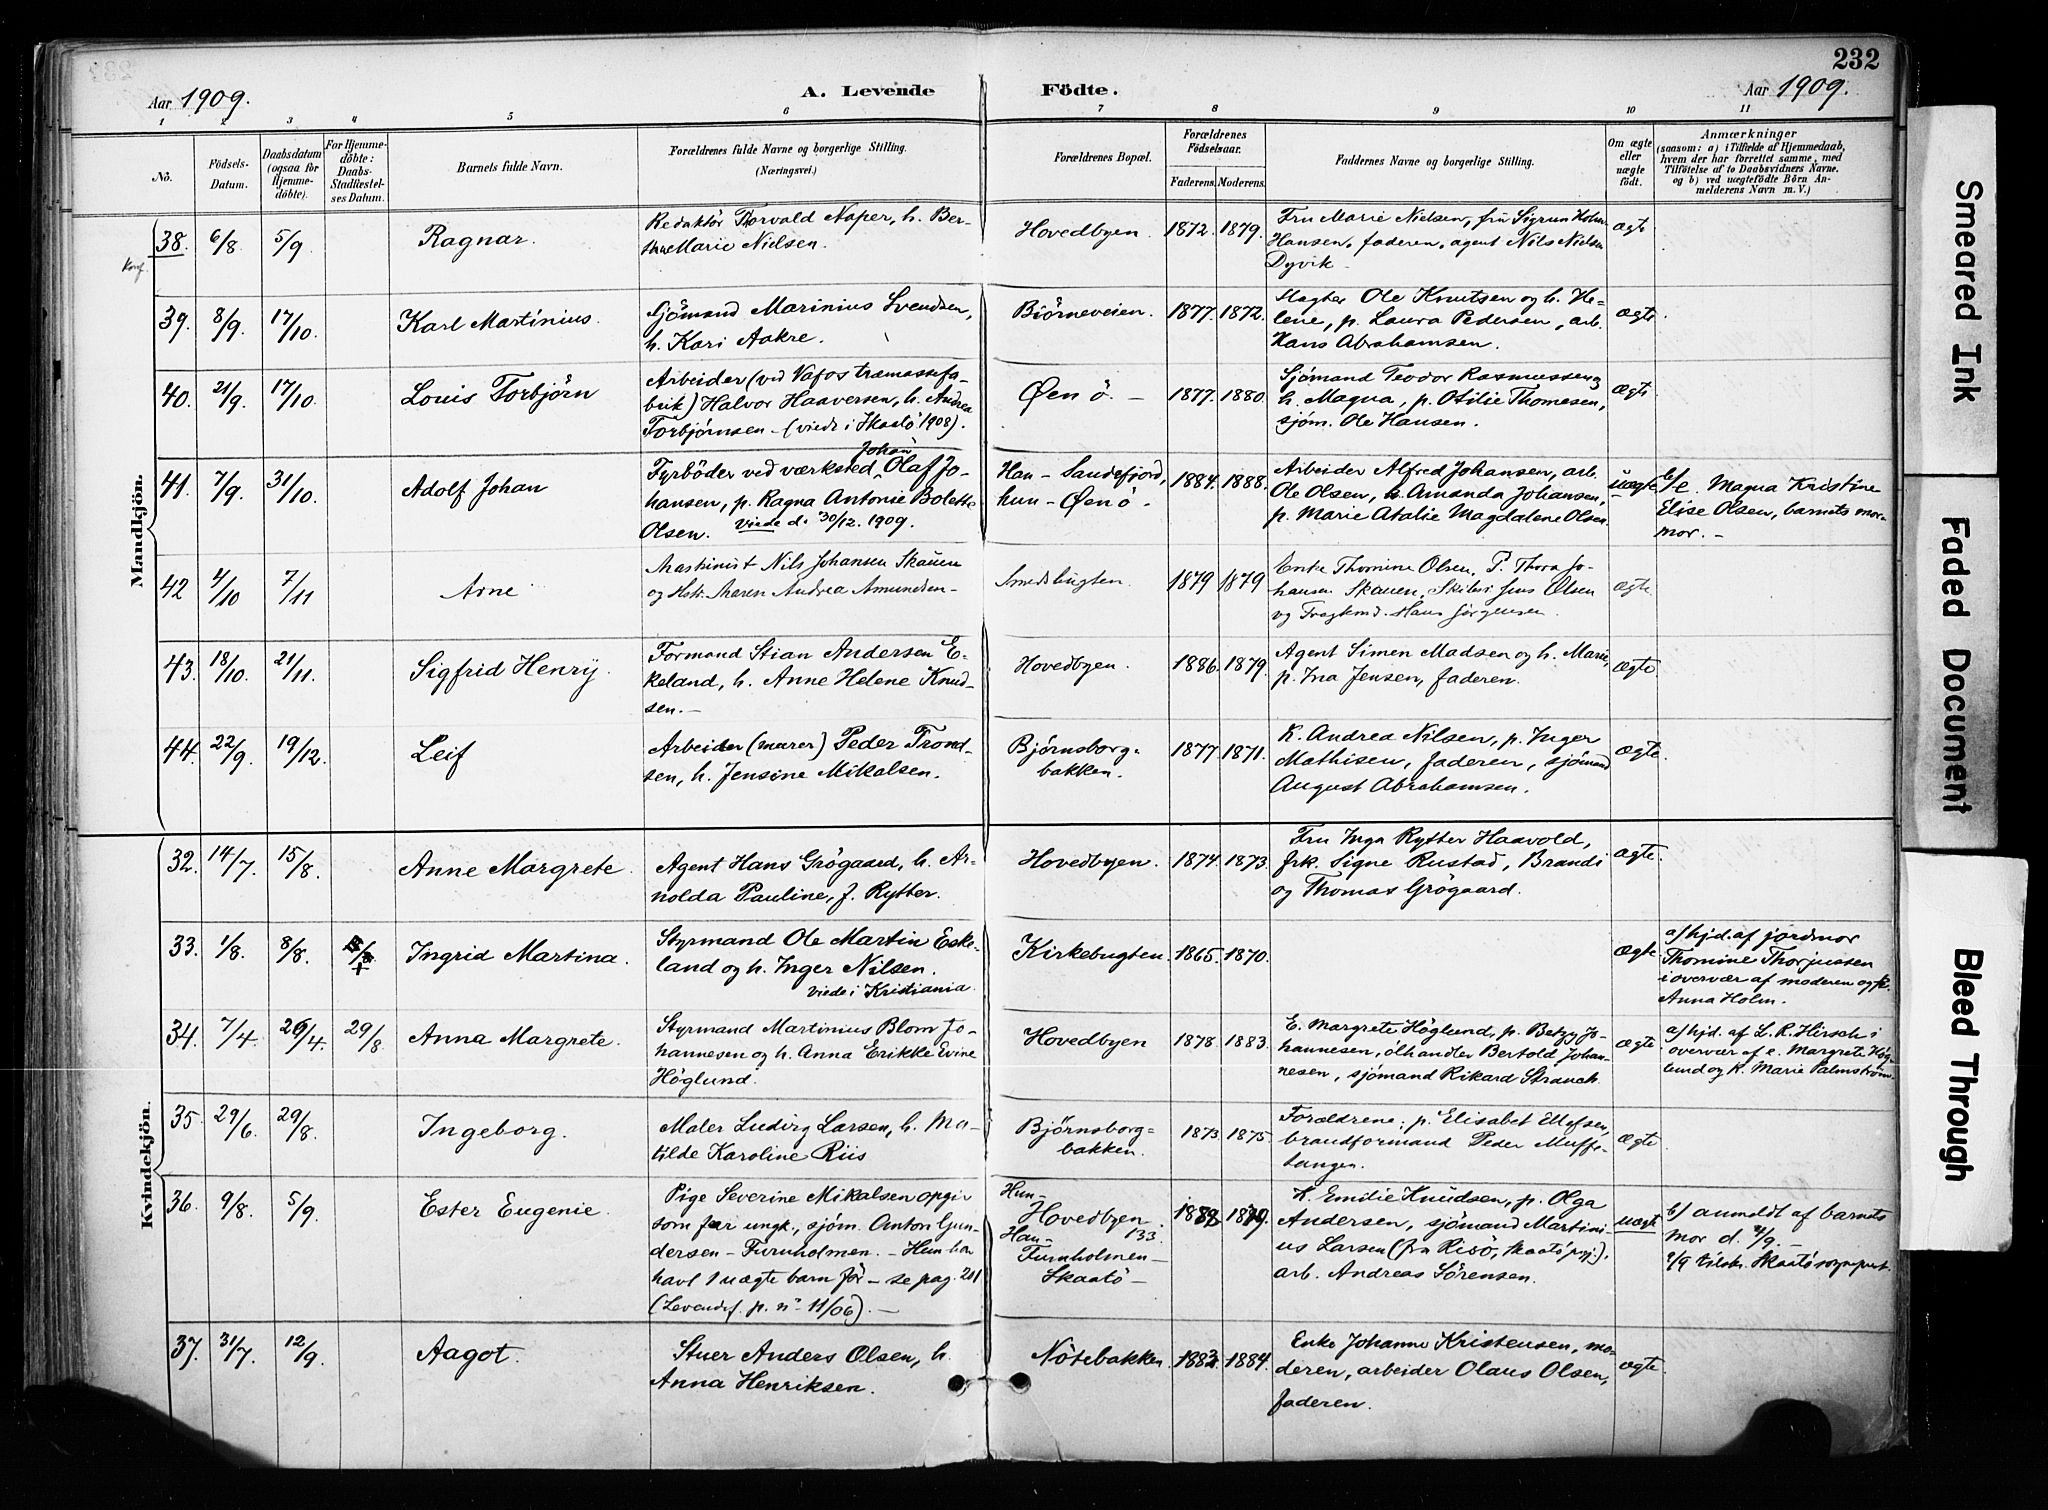 232
Aar 1909.
A. Levende Födte.
Aar 1909.
1 2 3 4 5 6 7 8 9 10 11
No.
Födsels-Datum.
Daabsdatum (ogsaa for Hjemme-döbte).
For Hjemme-döbte: Daabs-Stadfæstel-ses Datum.
Barnets fulde Navn.
Forældrenes fulde Navne og borgerlige Stilling.
(Næringsvei.)
Forældrenes Bopæl.
Forældrenes Födselsaar.
Faderens. Moderens.
Faddernes Navne og borgerlige Stilling.
Om ægte eller uægte födt.
Anmærkninger
(saasom: a) i Tilfælde af Hjemmedaab,
hvem der har forrettet samme, med
Tilföielse af to Daabsvidners Navne.
og b) ved uægtefödte Börn An-
melderens Navn m. V.)
Mandkjön.
38. 6/8 5/9 Ragnar. Redaktör Torvald Naper, h. Ber-
Marie Nielsen.
Hovedbyen. 1872. 1879. Fru Marie Nielsen, fru Sigrun Holm
Hansen, faderen, agent Nils Nielsen
Dyvik
ægte
Konf.
39. 8/9. 17/10. Karl Martinius. Sjömand Marinius Svendsen,
h. Kari Aakre.
Björneveien. 1877. 1872. Slagter Ole Knutsen og h. He-
lene, p. Laura Pedersen, arb.
Hans Abrahamsen.
ægte.
40. 21/9. 17/10. Louis Torbjörn Arbeider (ved Vafos træmassefa-
brik) Halvor Haaversen, h. Andrea
Torbjørnsen - (viede i Skaatö 1908).
Øenö. - 1877. 1880. Sjömand Teodor Rasmussen og
h. Magna, p. Otilie Thomesen,
sjöm. Ole Hansen.
ægte.
41. 7/9. 31/10. Adolf Johan Fyrböder ved værksted, Johan Olaf Jo-
hansen, p. Ragna Antonie Bolette
Olsen. Viede d. 30/12. 1909.
Han - Sandefjord,
hun - Øenö.
1884. 1888. Arbeider Alfred Johansen, arb.
Ole Olsen, h. Amanda Johansen,
p. Marie Atalie Magdalene Olsen.
uægte b/ e. Magna Kristine
Elise Olsen, barnets mor-
mor. -
42 4/10 7/11 Arne Maskinist Nils Johansen Skauen
og Hstr. Maren Andrea Amundsen
Smedsbugten. 1879 1879 Enke Thomine Olsen, P. Thora Jo-
hansen Skauen, Jens Olsen
og Hans Jørgensen.
ægte.
43. 18/10. 21/11. Sigfrid Henry. Formand Stian Andersen E-
keland, h. Anne Helene Knud-
sen. -
Hovedbyen. 1886. 1879. Agent Simen Madsen og h. Marie,
p. Ina Jensen, faderen.
ægte.
44. 22/9. 19/12. Leif Arbeider (murer) Peder Trond-
sen, h. Jensine Mikalsen.
Bjørnsborg-
bakken.
1877 1871. K. Andrea Nilsen, p. Inger
Mathisen, faderen, sjömand
August Abrahamsen.
ægte.
Kvindekjön.
32. 14/7. 15/8. Anne Margrete. Agent Hans Grögaard, h. Ar-
nolda Pauline, f. Rytter.
Hovedbyen. 1874. 1873. Fru Inga Rytter Haavold,
frk. Signe Rustad, Brandi
og Thomas Grögaard.
ægte.
33. 1/8. 8/8. Ingrid Martina. Styrmand Ole Martin Eske-
land og h. Inger Nilsen.
Viede i Kristiania.
Kirkebugten. 1865. 1870. ægte a/ hjd. af jordmor
Thomine Thorjussen
i overvær af moderen og k.
Anna Holm.
34. 7/4. 26/4. 29/8 Anna Margrete. Styrmand Martinius Blom Jo-
hannesen og h. Anna Erikke Evine
Höglund.
Hovedbyen 1878. 1883. E. Margrete Höglund, p. Betzy Jo-
hannesen, ölhandler Bertold Johan-
nesen, sjömand Rikard Strauch.
ægte a/ hjd. af L. R. Hirsch i
overvær af e. Margrete Hög-
lund og K. Marie Palmström.
35. 29/6. 29/8. Ingeborg. Maler Ludvig Larsen, h. Ma-
tilde Karoline Riis
Bjørnsborg-
bakken.
1873. 1875. Forældrene; p. Elisabet Ellefsen,
brandformand Peder Muffe-
tangen.
ægte
36. 9/8. 5/9. Ester Eugenie. Pige Severine Mikalsen opgir
som far ungk., sjöm. Anton Gun-
dersen - Furuholmen. - Hun har
havt 1 uægte barn för - se pag. 201
(Levendef. p. n° 11/06). -
Hun-
Hovedbyen 133.
Han-
Furuholmen -
Skaatö -
1889. K. Emilie Knudsen, p. Olga
Andersen, sjömand Martini-
us Larsen (fra Risö, Skaatö pgj.),
arb. Andreas Sörensen.
uægte b/ anmeldt af barnets
mor d. 4/9. -
37. 31/7. 12/9. Aagot. Stuer Anders Olsen, h.
Anna Henriksen.
Nötebakken 1883. 1884. Enke Johanne Kristensen, mo-
deren, arbeider Olaus Olsen,
faderen.
ægte.
Smeared Ink
Faded Document
Bleed Through